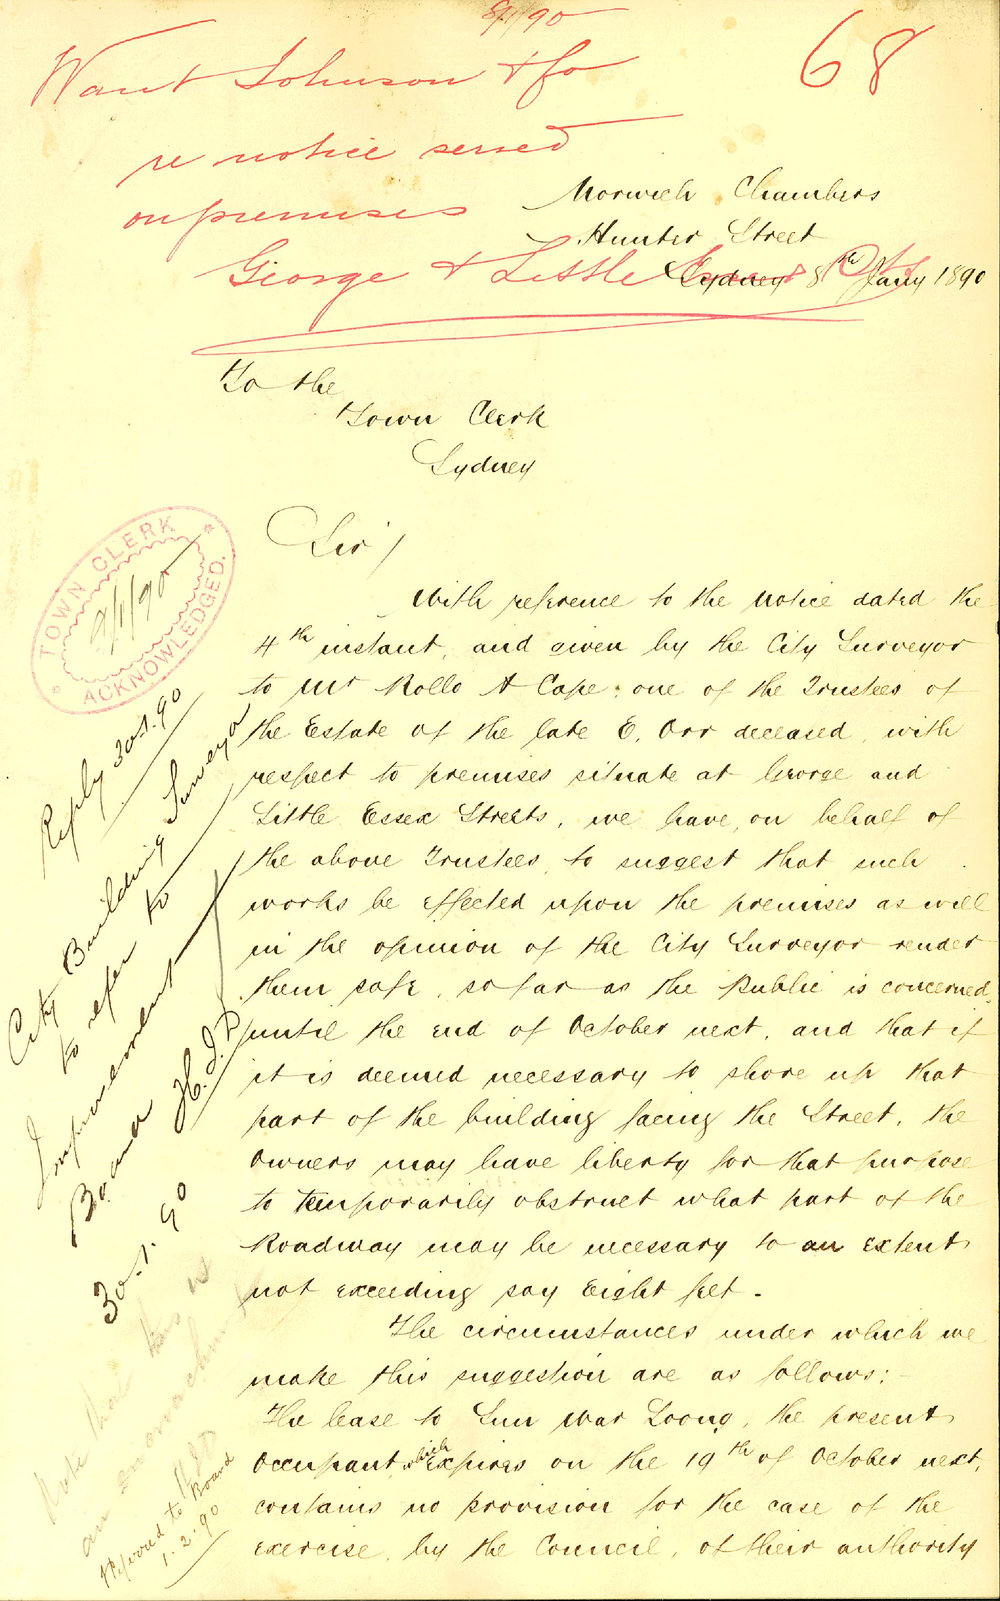 8/1/90
68
Want Johnson & Co
re notice served
on premises
George & Little Essex Sts
Norwich Chambers
Hunter Street
Sydney 8th Jany 1890
To the
Town Clerk
Sydney
Sir/
With reference to the Notice dated the
4th instant, and given by the City Surveyor
to Mr Rollo A Cape: one of the Trustees of
the Estate of the late E. Orr deceased, with
respect to premises situate at George and
Little Essex Streets, we have, on behalf of
the above Trustees, to suggest that such
works be effected upon the premises as will
in the opinion of the City Surveyor render
them safe, so far as the Public is concerned,
until the end of October next, and that if
it is deemed necessary to shore up that
part of the building facing the Street, the
Owners may have liberty for that purpose
to temporarily obstruct what part of the
Roadway may be necessary to an extent
not exceeding say Eight feet.
The circumstances under which we
make this suggestion are as follows:-
The lease to Sun War Loong, the present
Occupant, which Expires on the 19th of October next,
contains no provision for the case of the
exercise, by the Council, of their authority
TOWN CLERK
9/1/90
ACKNOWLEDGED.
Reply 30.1.90
City Building Surveyor
to refer to
Improvement
Board
30.1.90
Note that this is
an encroachment
Referred to Board
1.2.90